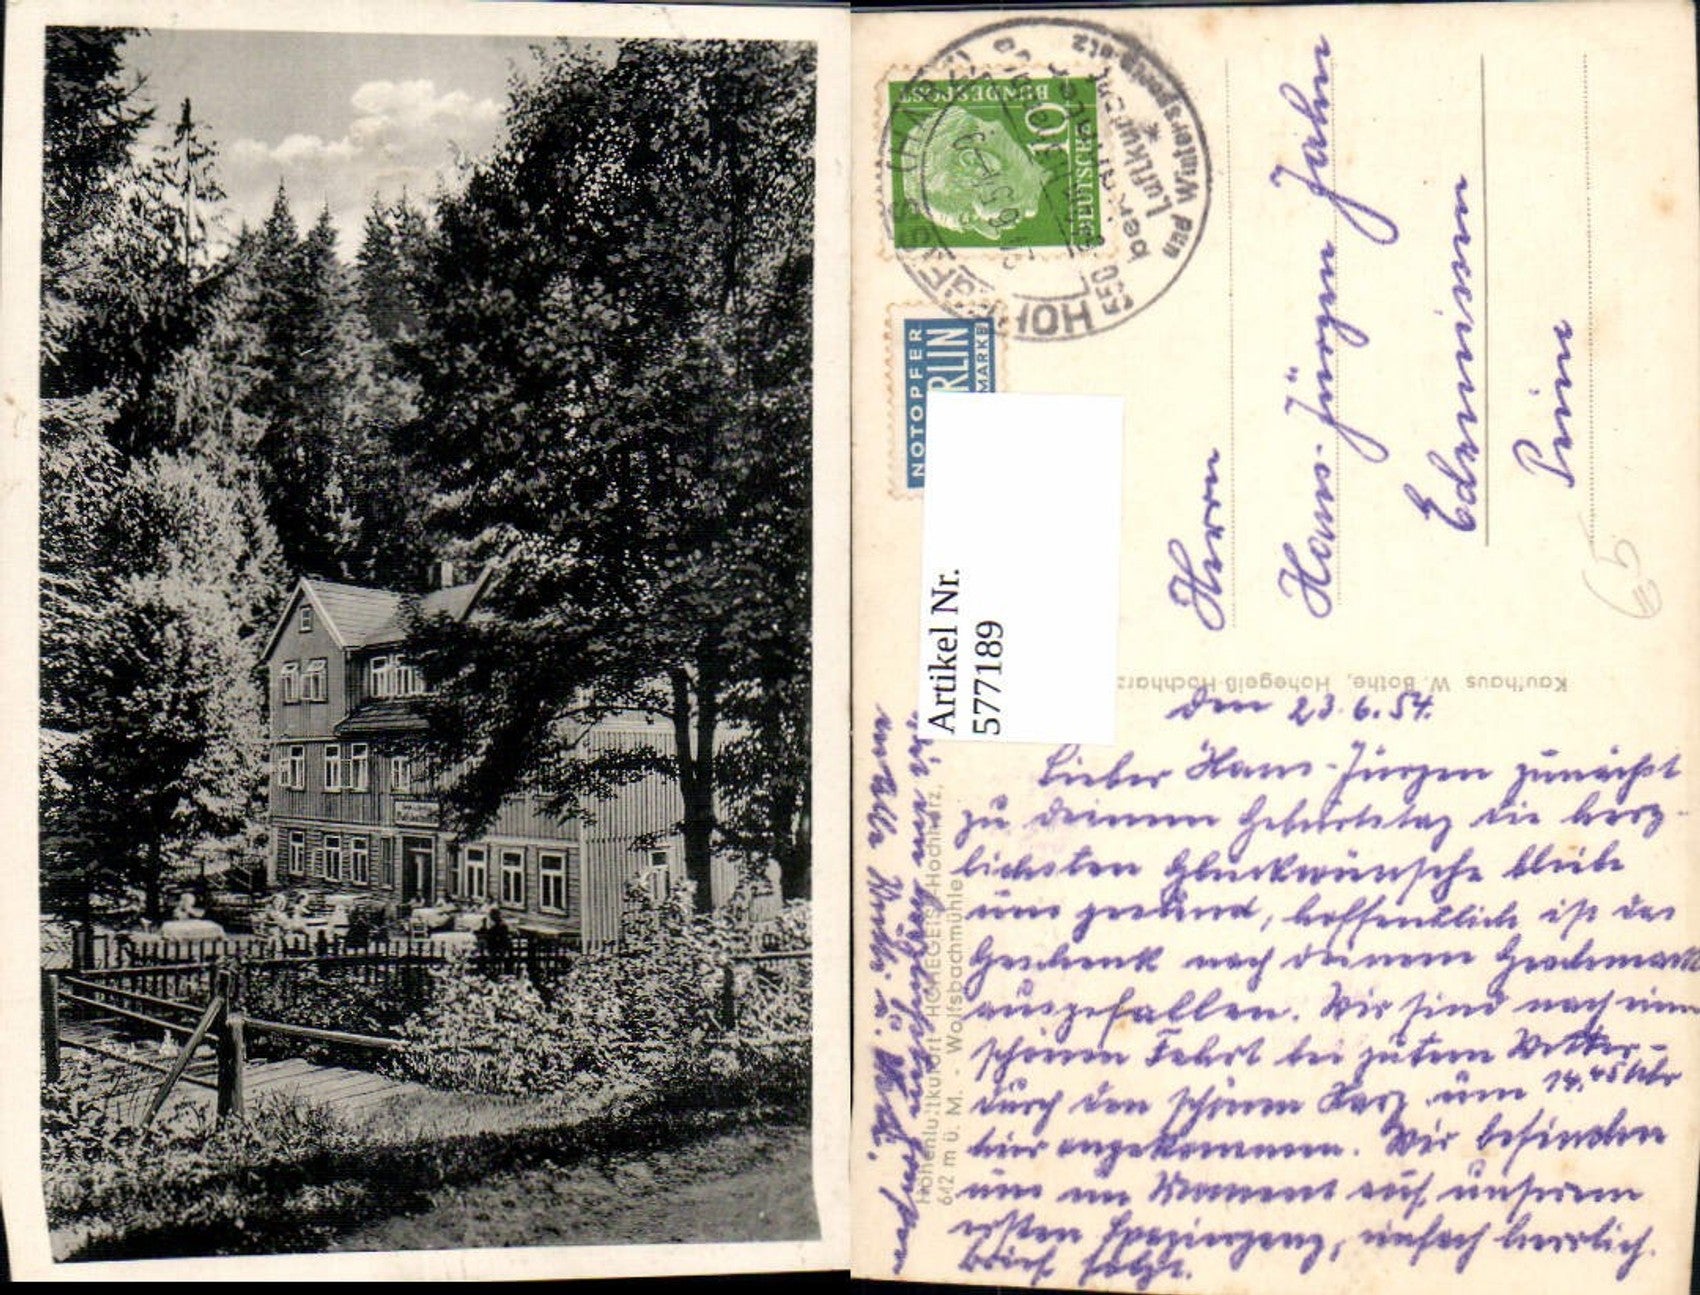 DEUTSCHE
BUNDESPOST
10
HOHEGEISS (HARZ)
Luftkurort
und Wintersportplatz
NOTOPFER
BERLIN
MARKE
Artikel Nr.
577189
Herrn
Hans-Jürgen Jahn
Kaufhaus W. Bothe, Hohegeiß-Hochharz
Höhenluftkurort HOHEGEISS-Hochharz,
642 m ü. M. - Wolfsbachmühle
den 23.6.54.
Lieber Hans-Jürgen zunächst
zu deinem Geburtstag die herz-
lichsten Glückwünsche bleibe
uns gesund, hoffentlich ist das
Geschenk nach deinem Geschmack
ausgefallen. Wir sind nach einer
schönen Fahrt bei gutem Wetter
durch den schönen Harz um 14.45 Uhr
hier angekommen. Wir befinden
uns im Moment auf unserem
ersten Spaziergang, einfach herrlich.
Brief folgt.